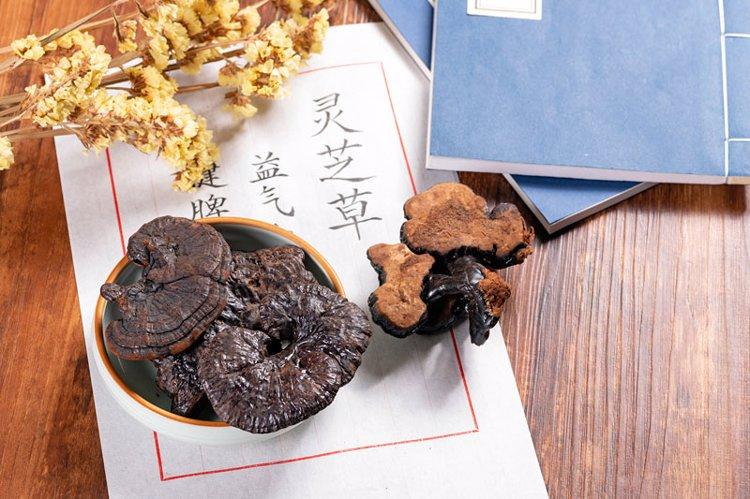 灵芝草
益气
健脾